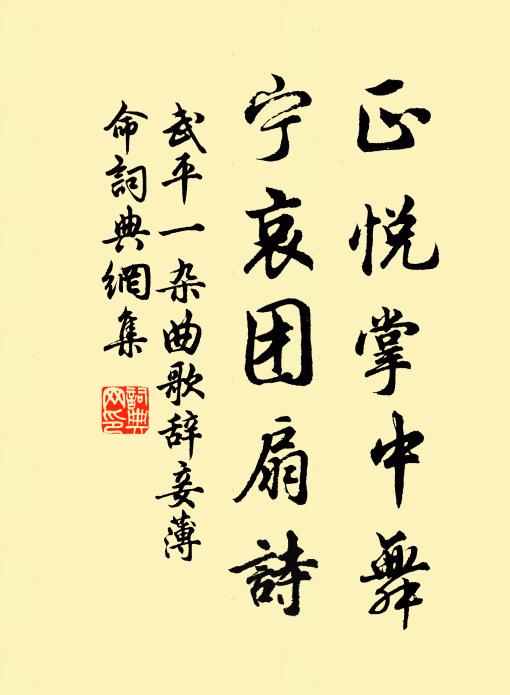 正悦掌中舞
宁哀团扇詩
武平一杂曲歌辞妾薄
命詞典網集
詞典
网印